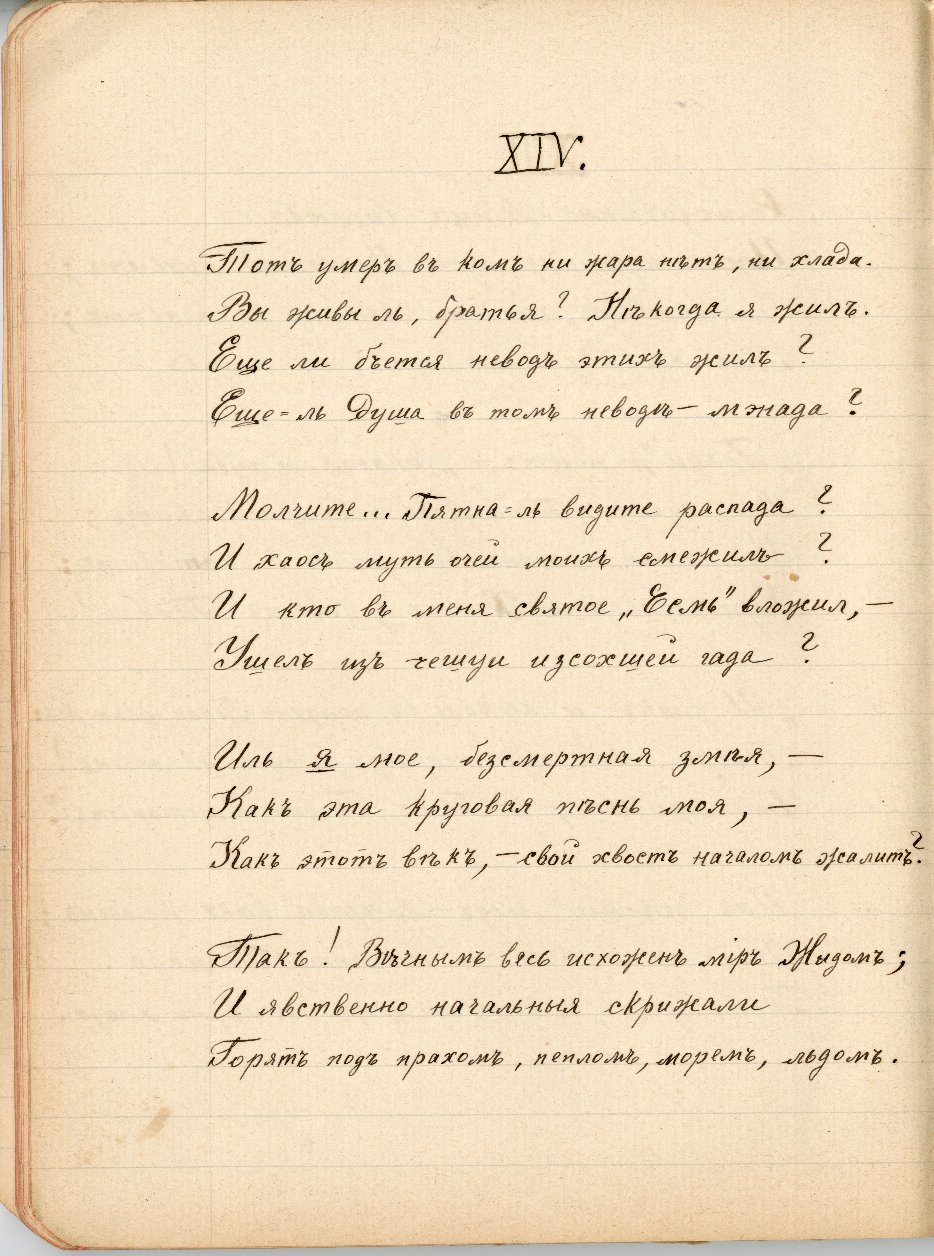 XIV.
Тотъ умеръ въ комъ ни жара нѣтъ, ни хлада.
Вы живы ль, братья? Нѣкогда я жилъ.
Еще ли бьется неводъ этихъ жилъ?
Еще-ль душа въ томъ неводѣ — мэнада?
Молчите... Пятна-ль видите распада?
И хаосъ муть очей моихъ смежилъ?
И кто въ меня святое „Есмь" вложил, —
Ушелъ изъ чешуи изсохшей гада?
Иль я мое, безсмертная змѣя, —
Какъ эта круговая пѣснь моя, —
Какъ этотъ вѣкъ, — свой хвостъ началомъ жалитъ?
Такъ! Вѣчнымъ весь исхоженъ міръ Жидомъ;
И явственно начальныя скрижали
Горятъ подъ прахомъ, пепломъ, моремъ, льдомъ.